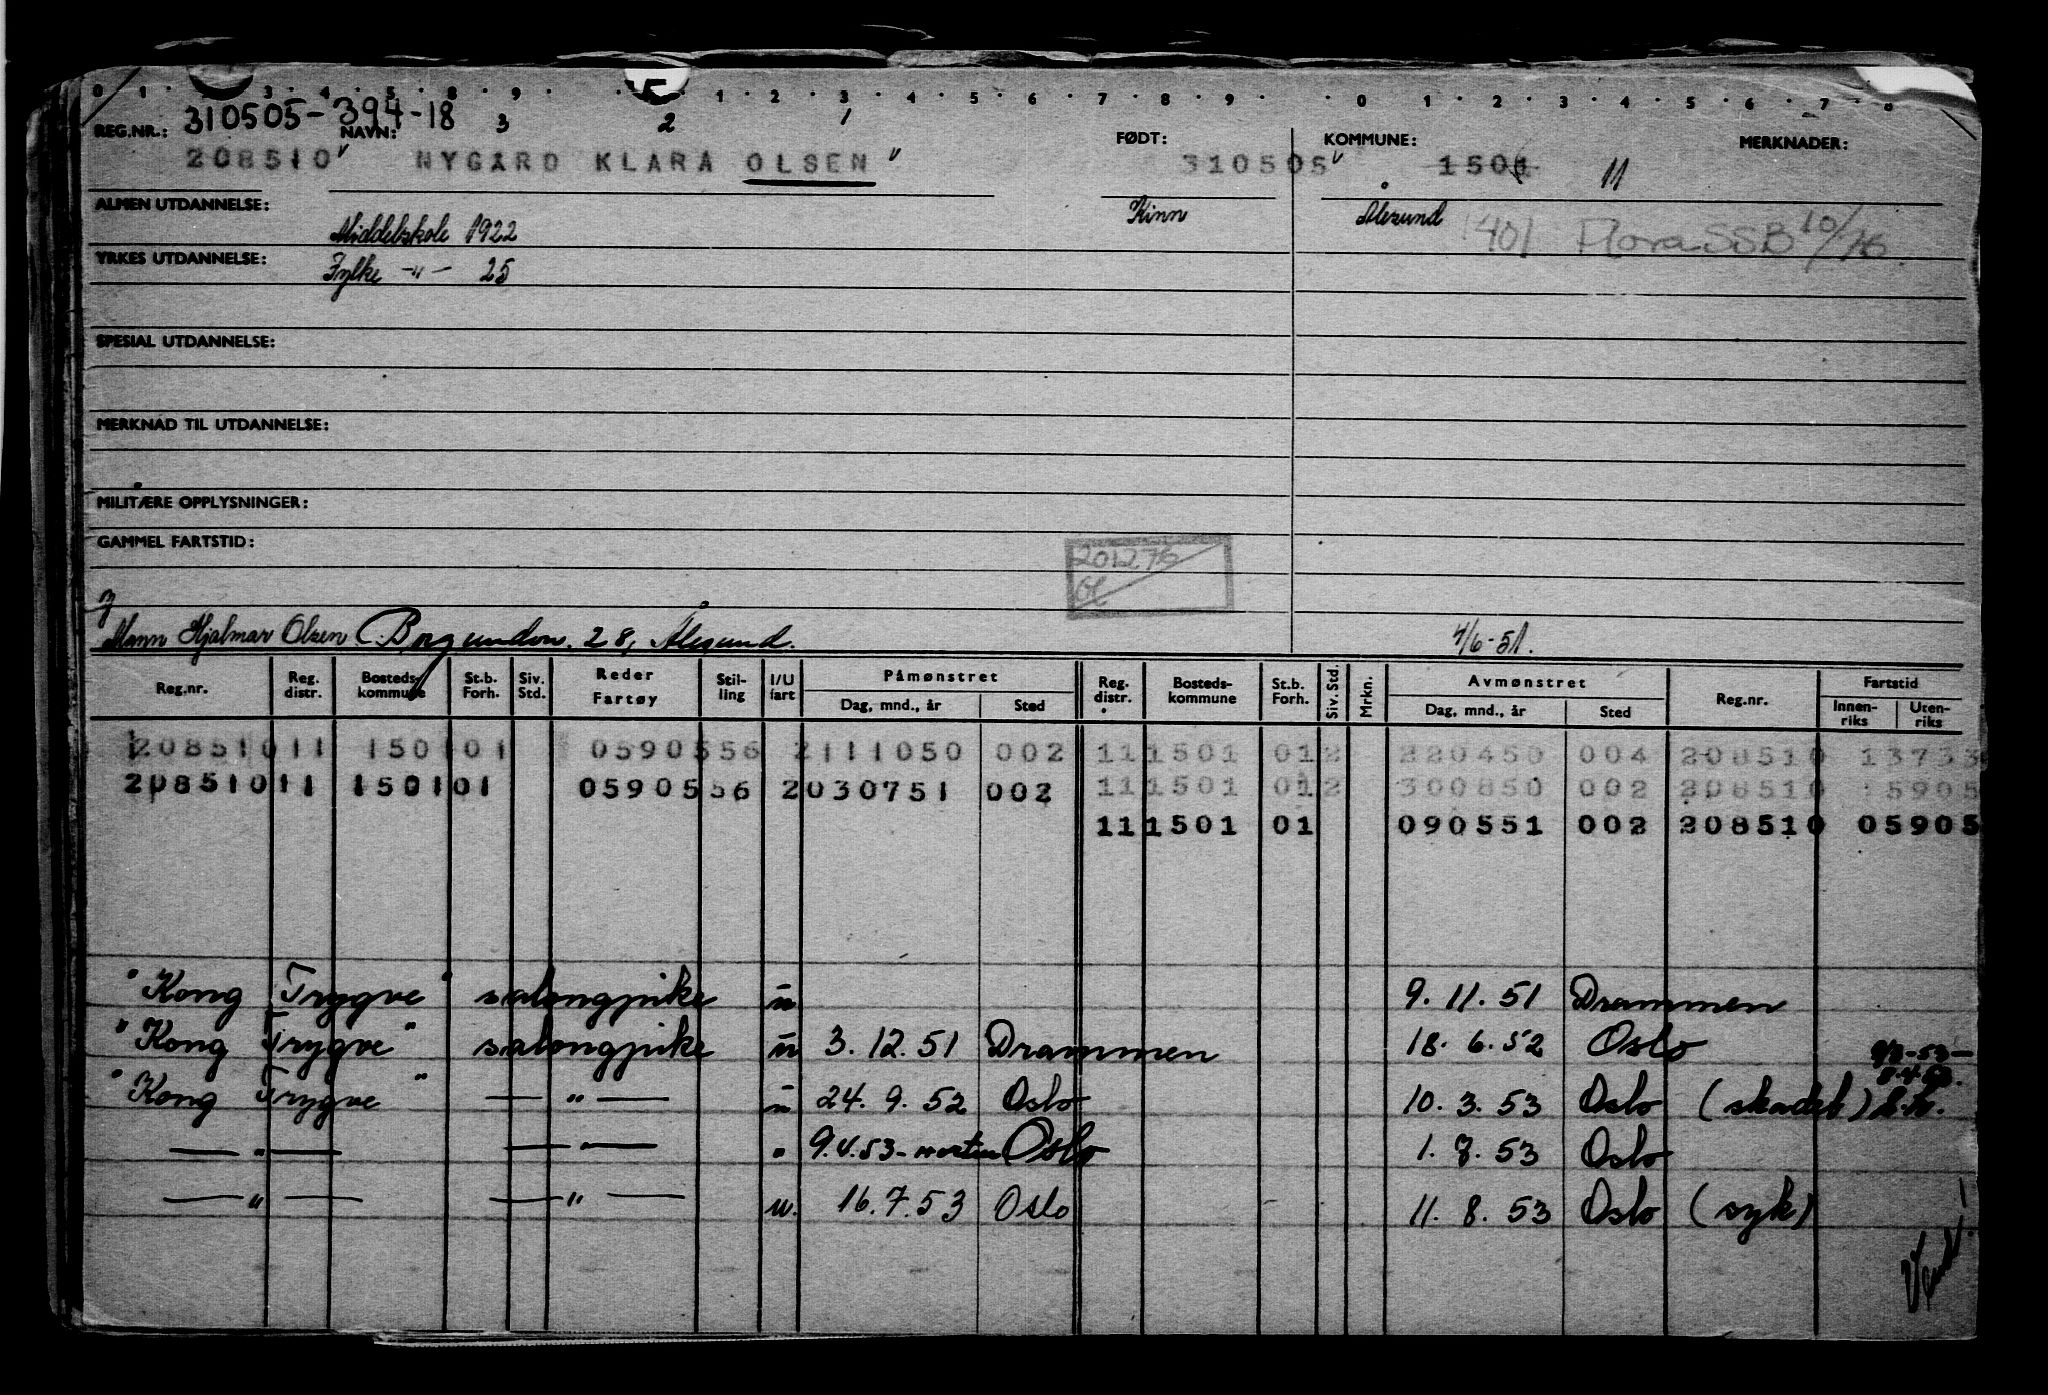 0 1 3 4 5 8 9 5 1 2 3 4 5 6 7 8 9 0 1 2 3 4 5 6 7 8
REG.NR.: 310505-394-18 NAVN: 3 2 1 FØDT: KOMMUNE: MERKNADER:
208510 NYGARD KLARA OLSEN 310505 1501 11
ALMEN UTDANNELSE: Middelskole 1922 Kinn Ålesund 1401 Flora SSB 10/76.
YRKES UTDANNELSE: Fylke -"- 25
SPESIAL UTDANNELSE:
MERKNAD TIL UTDANNELSE:
MILITÆRE OPPLYSNINGER:
GAMMEL FARTSTID:
201276
Mann Hjalmar Olsen Borgundvn. 28, Ålesund. 4/6-51.
Reg.nr. Reg. distr. Bosteds-kommune St.b. Forh. Siv. Std. Reder Fartøy Stil-ling I/U fart Påmønstret Dag, mnd., år Sted Reg. distr. Bosteds-kommune St.b. Forh. Siv. Std. Mrkn. Avmønstret Dag, mnd., år Sted Reg.nr. Fartstid Innen-riks Uten-riks
208510 11 1501 01 0590556 2 111050 002 11 1501 01 2 220450 004 208510 13733
208510 11 1501 01 0590556 2 030751 002 11 1501 01 2 300850 002 208510 15905
11 1501 01 090551 002 208510 05905
"Kong Trygve" salongpike u 9. 11. 51 Drammen
"Kong Trygve" salongpike u 3. 12. 51 Drammen 18. 6. 52 Oslo
"Kong Trygve" — " — u 24. 9. 52 Oslo 10. 3. 53 Oslo (skadet)
— " — — " — " 9.4.53 Oslo 1. 7. 53 Oslo
— " — — " — u. 16. 7. 53 Oslo 11. 8. 53 Oslo (syk)
Vend!